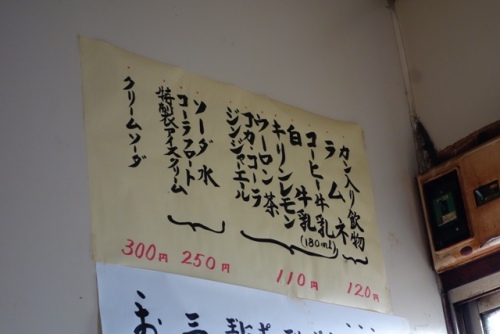 カン入り飲物
ラムネ
120円
コーヒー牛乳(180ml)
白牛乳
キリンレモン
ウーロン茶
コカコーラ
ジンジャエール
110円
ソーダ水
コーラフロート
特製アイスクリーム
250円
クリームソーダ
300円